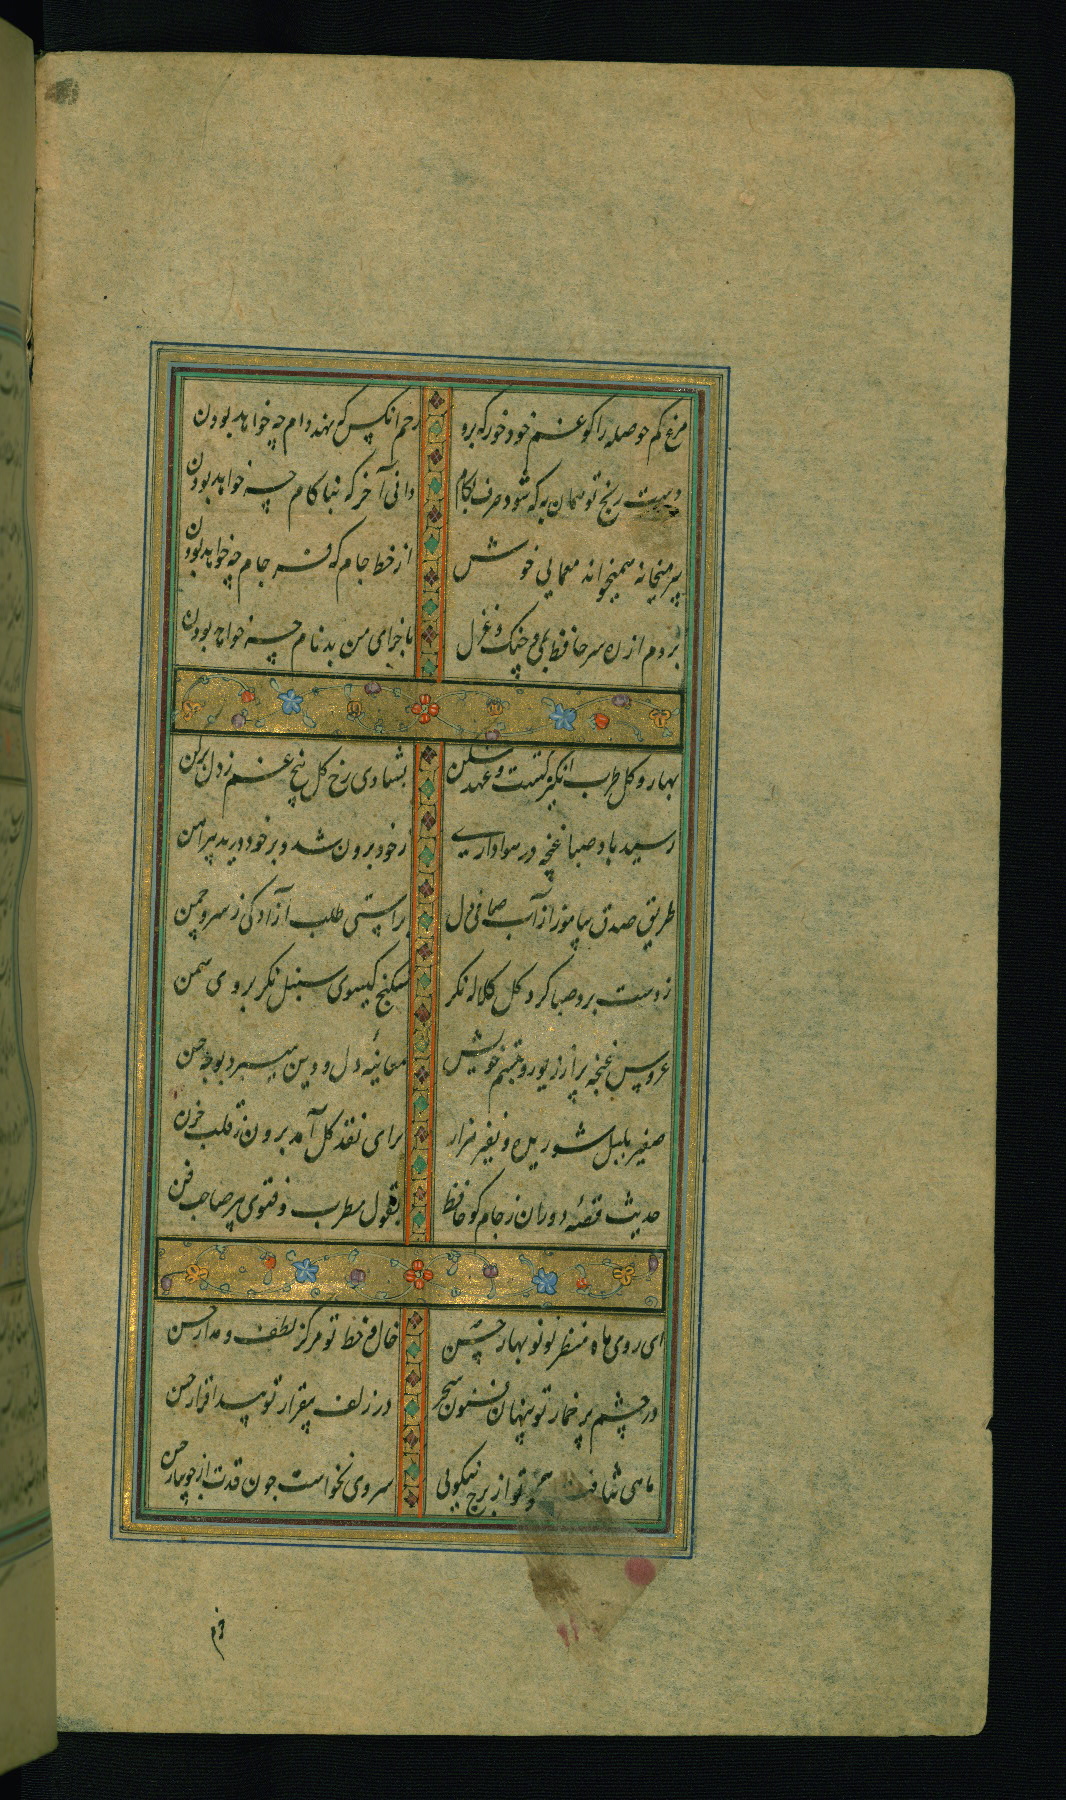 مرغ کم حوصله را کو غم خود خور که برو رحم آنکس که نهد دام چه خواهد بودن
دست رنج تو همان به که شود صرف بکام دانی آخر که بناکام چه خواهد بودن
پیر میخانه همیخواند معمایی خوش از خط جام که فرجام چه خواهد بودن
بردم از ره سر حافظ بمی و چنک و غزل تا جزای من بدنام چه خواهد بودن
بهار و کل طرب انکیز کشت و عهد شکن بشادی رخ کل بیخ غم ز دل برکن
رسید باد صبا غنچه در هواداری ز خود برون شد و بر خود درید پیراهن
طریق صدق بیاموز از آب صافی دل براستی طلب آزادکی ز سرو چمن
ز دست برد صبا کرد کل کلاله نکر شکنج کیسوی سنبل نکر بروی سمن
عروس غنچه پر از زیور و تبسم خویش معاینه دل و دین میبرد بوجه حسن
صفیر بلبل شوریده و نفیر هزار برای نقد کل آمد برون ز قلب حزن
حدیث قصه دوران ز جام کو حافظ بقول مطرب و فتوی پیر صاحب فن
ای روی ماه منظر تو نو بهار حسن خال و خط تو مرکز لطف و مدار حسن
در چشم پر خمار تو پنهان فسون سحر در زلف بیقرار تو پیدا قرار حسن
ماهی نتافت همچو تو از برج نیکویی سروی نخواست چون قدت از جویبار حسن
خرم